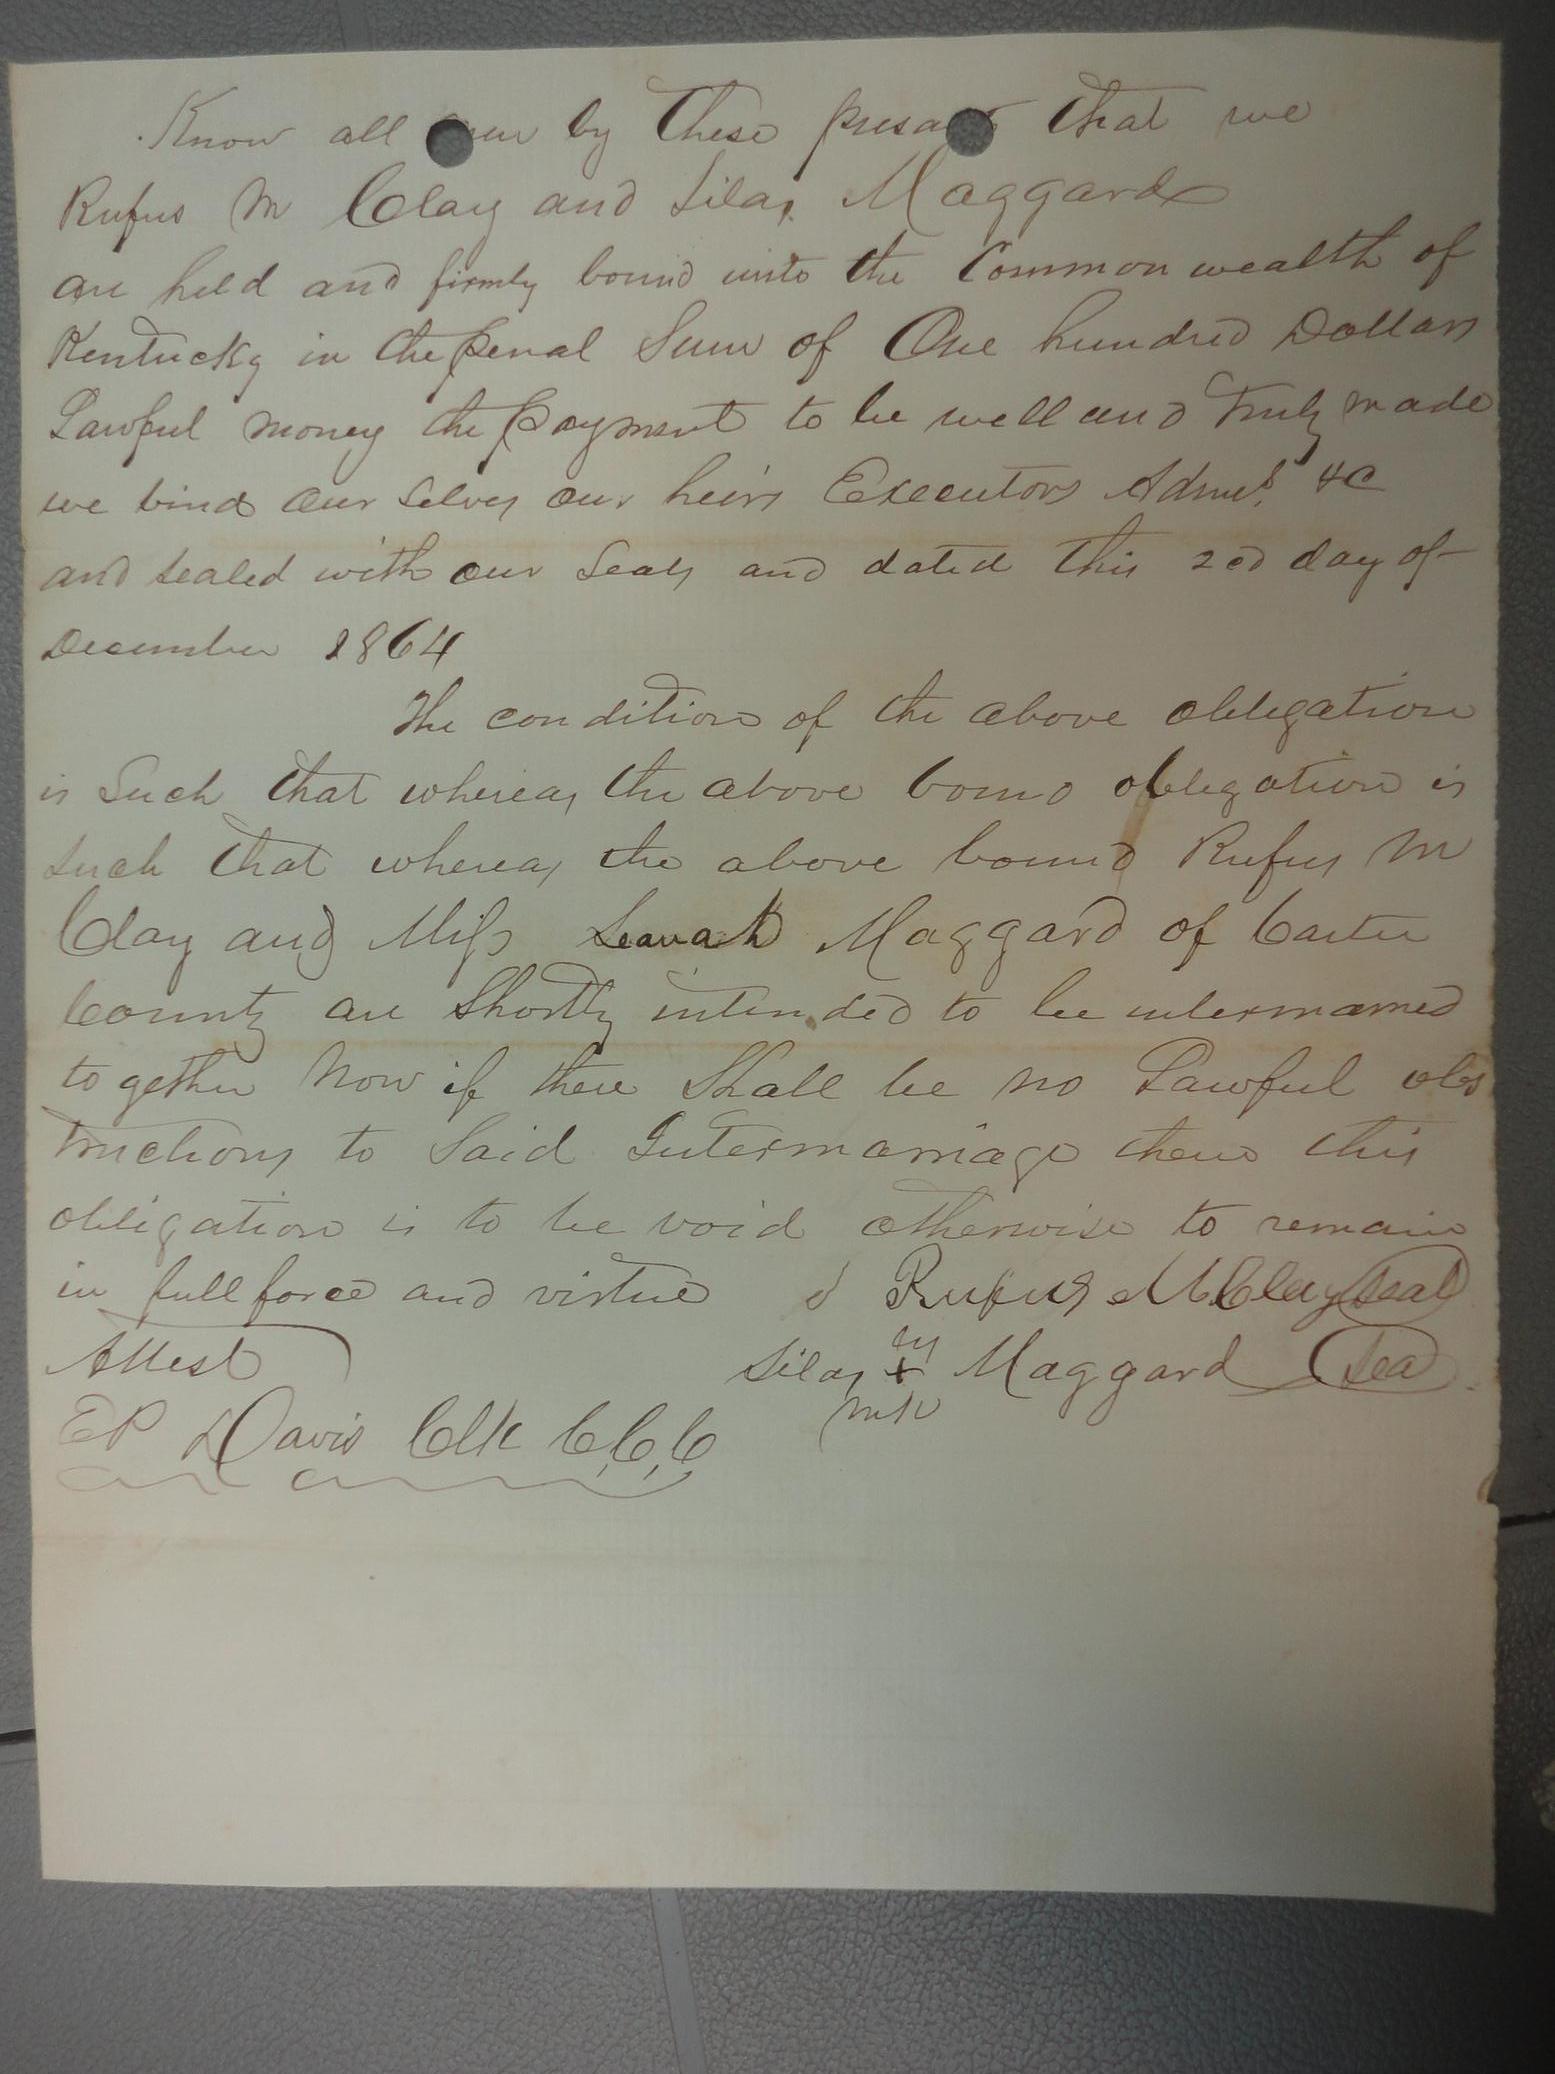 Know all men by These presants that we
Rufus M Clay and Silas Maggard
are held and firmly bound unto the Common wealth of
Kentucky in the penal Sum of One hundred Dollars
Lawful money the payment to be well and Truly made
we bind our selves our heirs Executors Admrs. &C
and sealed with our Seals and dated this 2cd day of
December 1864
The condition of the above obligation
is Such that whereas the above bound obligation is
such that whereas the above bound Rufus M
Clay and Miss Leavah Maggard of Carter
County are Shortly intended to be intermarried
to gether Now if there Shall be no Lawful obs
tructions to Said Intermarriage then this
obligation is to be void otherwise to remain
in full force and virtue Rufus M Clay Seal
Attest Silas + Maggard Seal
mk
EP Davis Clk C,C,C